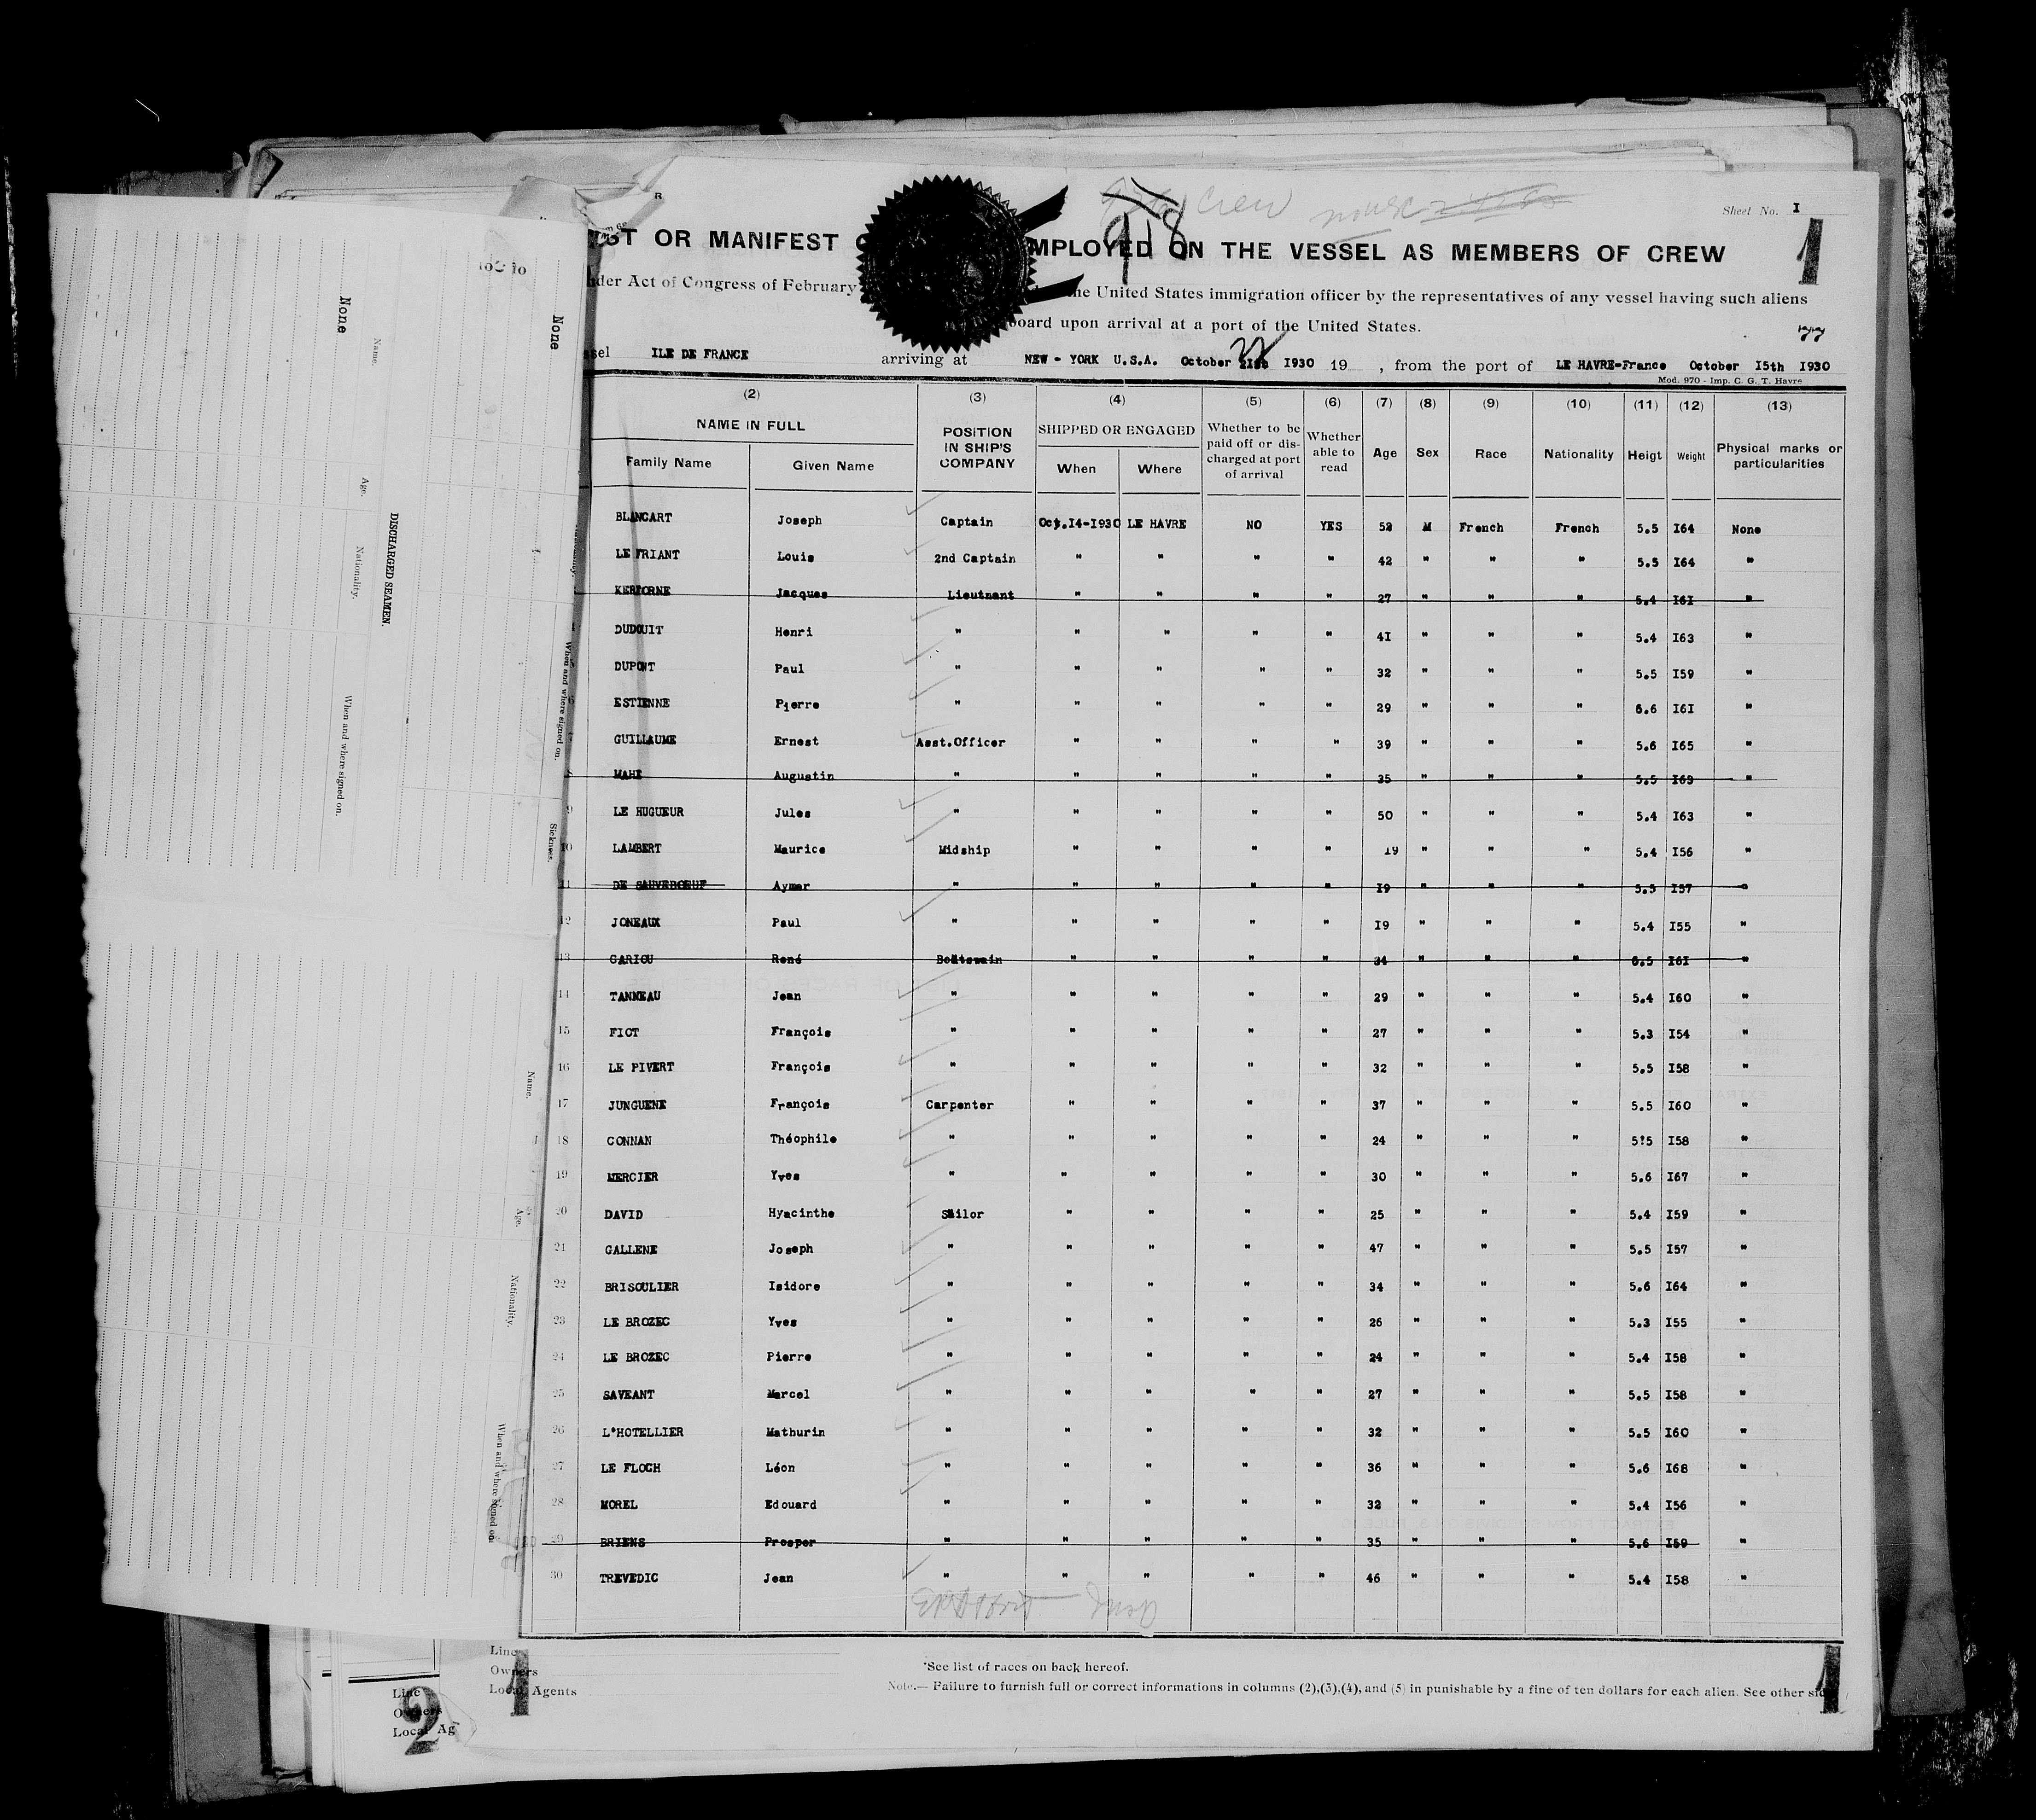 Crew
918
Sheet No. I
1
ST OR MANIFEST O MPLOYED ON THE VESSEL AS MEMBERS OF CREW
nder Act of Congress of February the United States immigration officer by the representatives of any vessel having such aliens
board upon arrival at a port of the United States.
ssel ILE DE FRANCE arriving at NEW - YORK U.S.A. October 21st 22 I930 19 , from the port of LE HAVRE-France October I5th I930
Mod. 970 - Imp. C. G. T. Havre
(2) (3) (4) (5) (6) (7) (8) (9) (10) (11) (12) (13)
NAME IN FULL POSITION IN SHIP'S COMPANY SHIPPED OR ENGAGED Whether to be paid off or discharged at port of arrival Whether able to read Age Sex Race Nationality Heigt Weight Physical marks or particularities
Family Name Given Name When Where
BLANCART Joseph Captain Oct.I4-I930 LE HAVRE NO YES 52 M French French 5.5 I64 None
LE FRIANT Louis 2nd Captain " " " " 42 " " " 5.5 I64 "
KERFORNE Jacques Lieutnant " " " " 27 " " " 5.4 I6I "
DUDOUIT Henri " " " " " 4I " " " 5.4 I63 "
DUPONT Paul " " " " " 32 " " " 5.5 I59 "
ESTIENNE Pierre " " " " " 29 " " " 6.6 I6I "
GUILLAUME Ernest Asst.Officer " " " " 39 " " " 5.6 I65 "
8 MAHE Augustin " " " " " 35 " " " 5.5 I63 "
9 LE HUGUEUR Jules " " " " " 50 " " " 5.4 I63 "
10 LAMBERT Maurice Midship " " " " I9 " " " 5.4 I56 "
11 DE SAUVEBOEUF Aymar " " " " " I9 " " " 5.5 I57 "
12 JONEAUX Paul " " " " " I9 " " " 5.4 I55 "
13 CARIOU René Boatswain " " " " 34 " " " 6.5 I6I "
14 TANNEAU Jean " " " " " 29 " " " 5.4 I60 "
15 FICT François " " " " " 27 " " " 5.3 I54 "
16 LE PIVERT François " " " " " 32 " " " 5.5 I58 "
17 JUNGUENE François Carpenter " " " " 37 " " " 5.5 I60 "
18 CONNAN Théophile " " " " " 24 " " " 5?5 I58 "
19 MERCIER Yves " " " " " 30 " " " 5.6 I67 "
20 DAVID Hyacinthe Sailor " " " " 25 " " " 5.4 I59 "
21 GALLENE Joseph " " " " " 47 " " " 5.5 I57 "
22 BRISOULIER Isidore " " " " " 34 " " " 5.6 I64 "
23 LE BROZEC Yves " " " " " 26 " " " 5.3 I55 "
24 LE BROZEC Pierre " " " " " 24 " " " 5.4 I58 "
25 SAVEANT Marcel " " " " " 27 " " " 5.5 I58 "
26 L'HOTELLIER Mathurin " " " " " 32 " " " 5.5 I60 "
27 LE FLOCH Léon " " " " " 36 " " " 5.6 I68 "
28 MOREL Edouard " " " " " 32 " " " 5.4 I56 "
29 BRIENS Prosper " " " " " 35 " " " 5.6 I59 "
30 TREVEDIC Jean " " " " " 46 " " " 5.4 I58 "
Line
Owners
Local Agents
*See list of races on back hereof.
Note.— Failure to furnish full or correct informations in columns (2),(3),(4), and (5) in punishable by a fine of ten dollars for each alien. See other side
1
1
Line
Owners
Local Ag
2
None
Name.
Age.
Nationality.
When and where signed on.
DISCHARGED SEAMEN.
None
When and where signed on.
Sickness.
Name.
Age.
Nationality.
When and where signed on